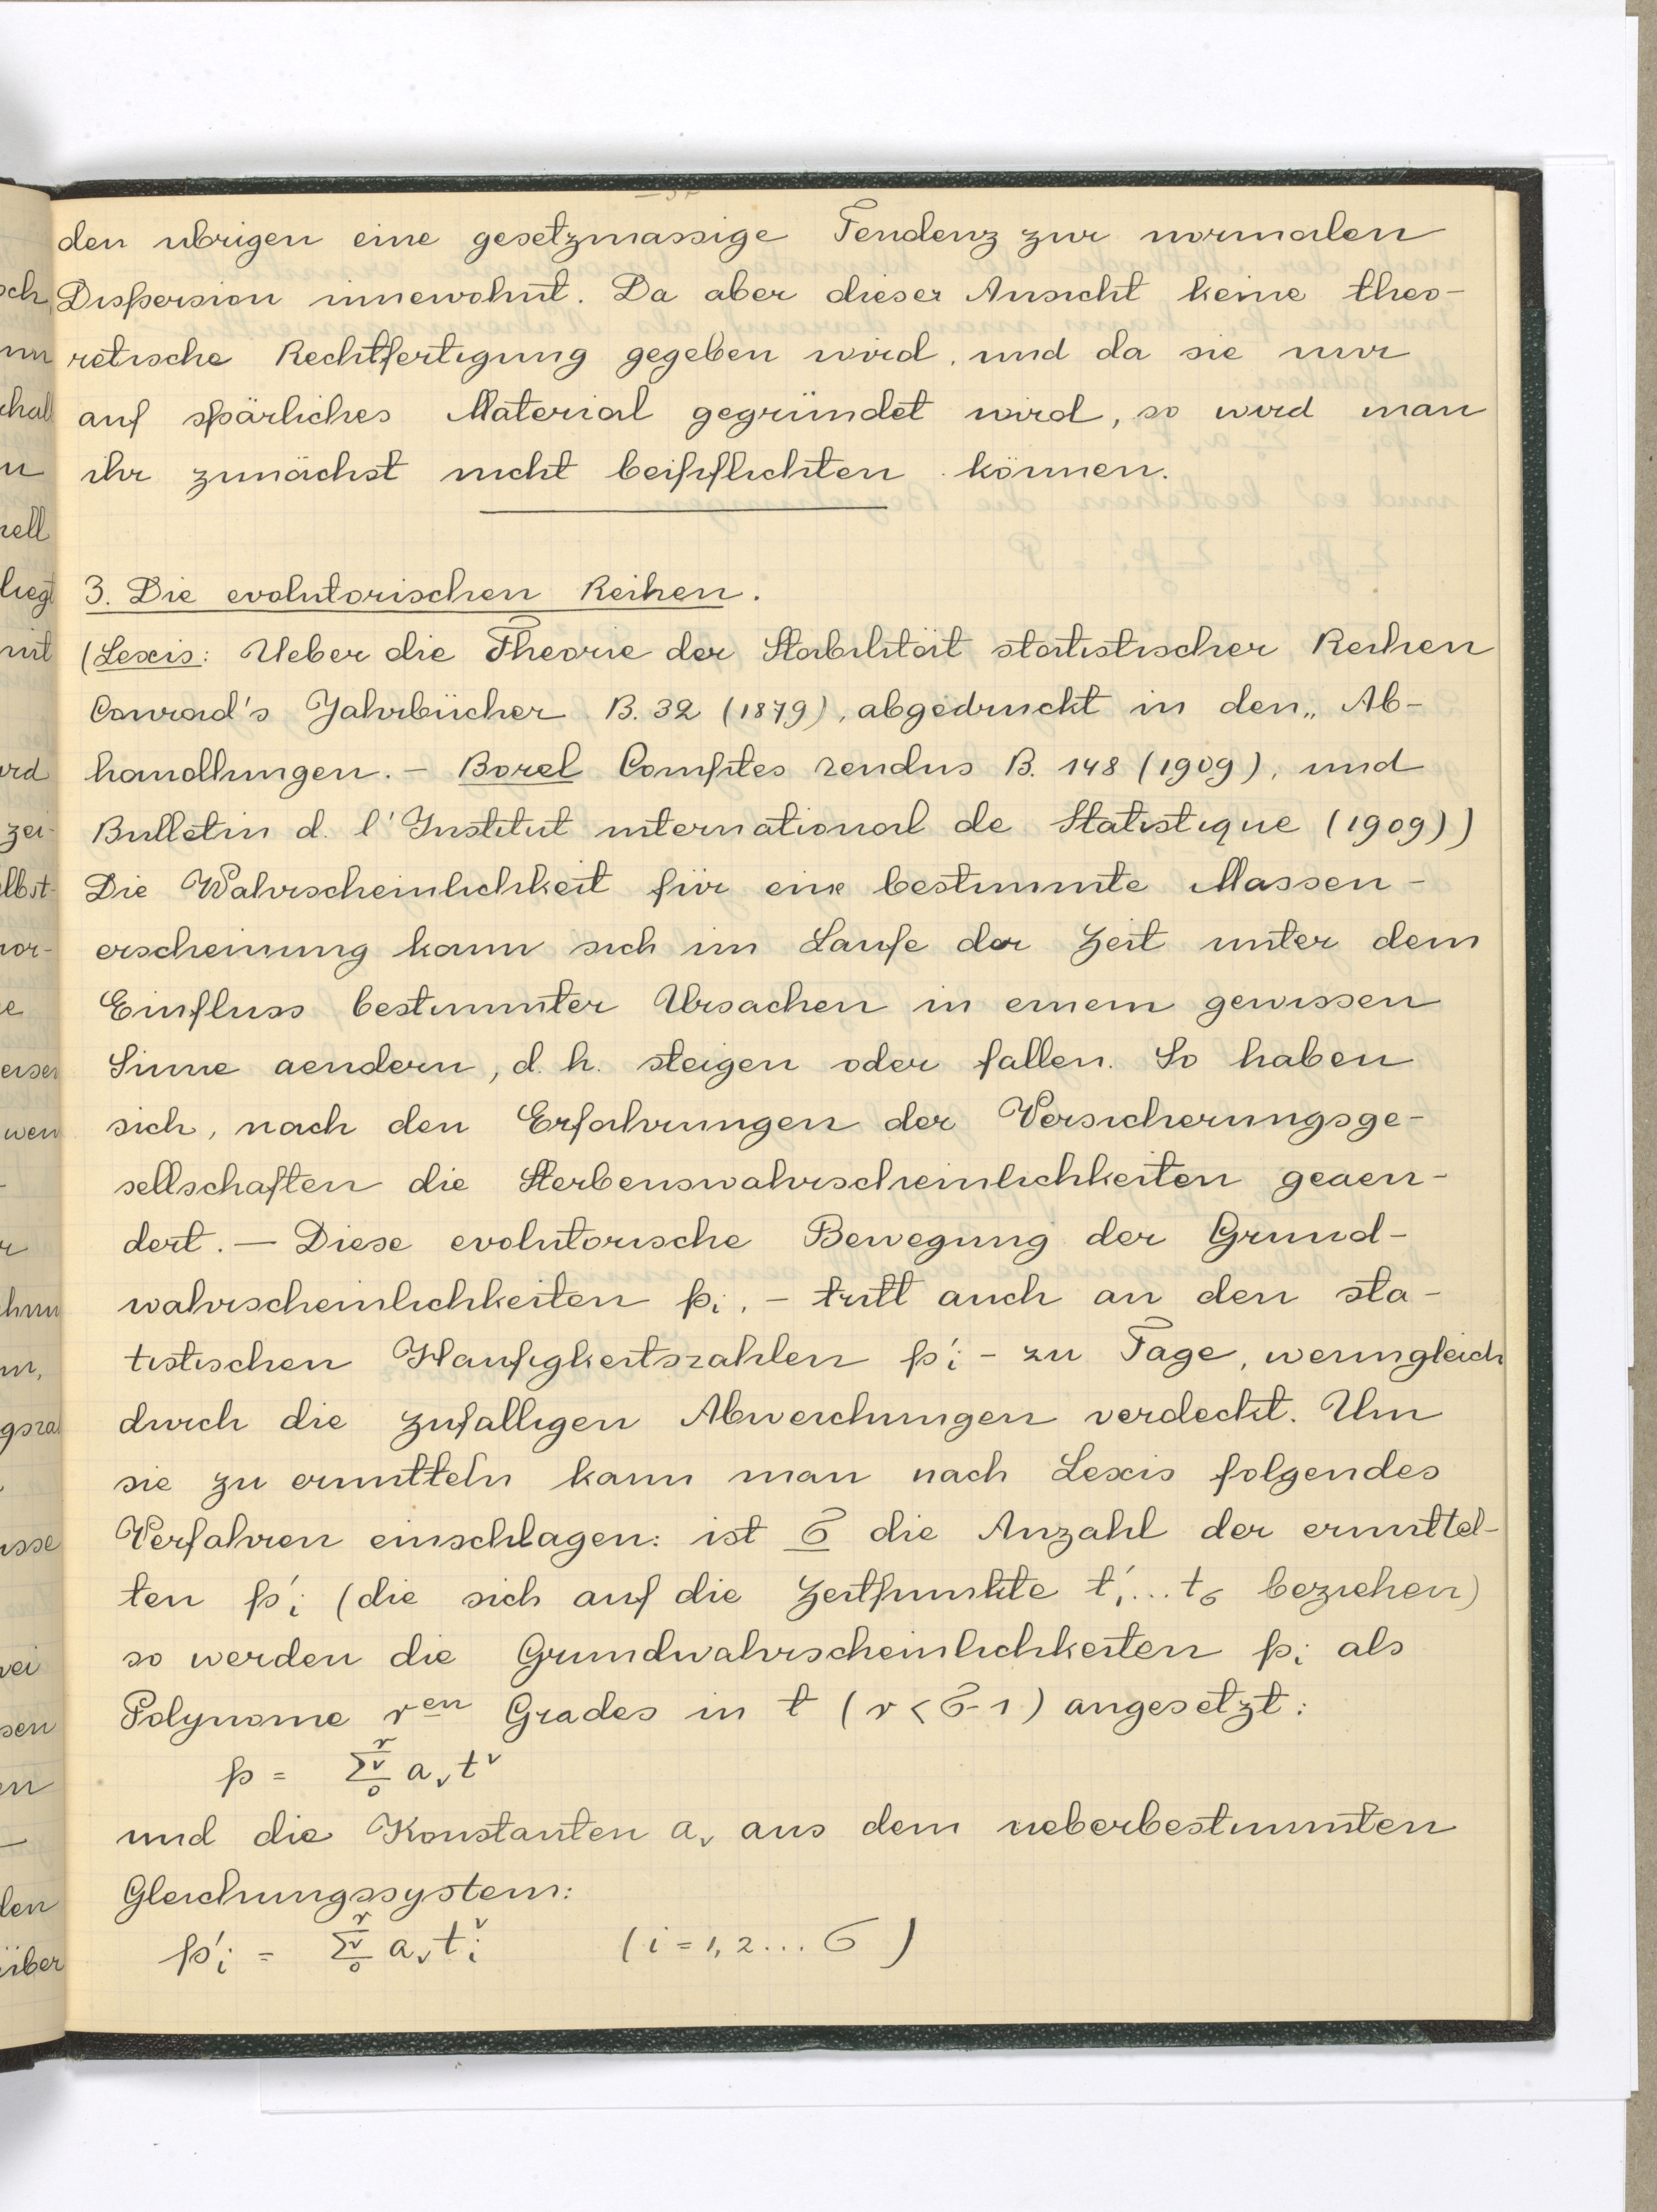 den ubrigen eine gesetzmassige Tendenz zur normalen
Dispersion innewohnt. Da aber dieser Ansicht keine theo-
retische Rechtfertigung gegeben wird, und da sie nur
auf spärliches Material gegründet wird, so wird man
ihr zunächst nicht beipflichten können.
3. Die evolutorischen Reihen.
(Lexis: Ueber die Theorie der Stabilität statistischer Reihen
Conrad's Jahrbücher B. 32 (1879), abgedruckt in den „ Ab-
handlungen. - Borel Comptes rendus B. 148 (1909), und
Bulletin d. l'Institut international de Statistique (1909))
Die Wahrscheinlichkeit für eine bestimmte Massen-
erscheinung kann sich im Laufe der Zeit unter dem
Einfluss bestimmter Ursachen in einem gewissen
Sinne aendern, d. h. steigen oder fallen. So haben
sich, nach den Erfahrungen der Versicherungsge-
sellschaften die Sterbenswahrscheinlichkeiten geaen-
dert. — Diese evolutorische Bewegung der Grund-
wahrscheinlichkeiten pᵢ, - tritt auch an den sta-
tistischen Haufigkeitszahlen p'ᵢ - zu Tage, wenngleich
durch die zufalligen Abweichungen verdeckt. Um
sie zu ermitteln kann man nach Lexis folgendes
Verfahren einschlagen: ist σ die Anzahl der ermittel-
ten p'ᵢ (die sich auf die Zeitpunkte t'₁...t_σ beziehen)
so werden die Grundwahrscheinlichkeiten pᵢ als
Polynome r^en Grades in t (r < σ-1) angesetzt:
p = Σ_0^r ν a_ν t^ν
und die Konstanten a_ν aus dem ueberbestimmten
Gleichungssystem:
p'ᵢ = Σ_0^r ν a_ν tᵢ^ν (i = 1, 2 ... σ)